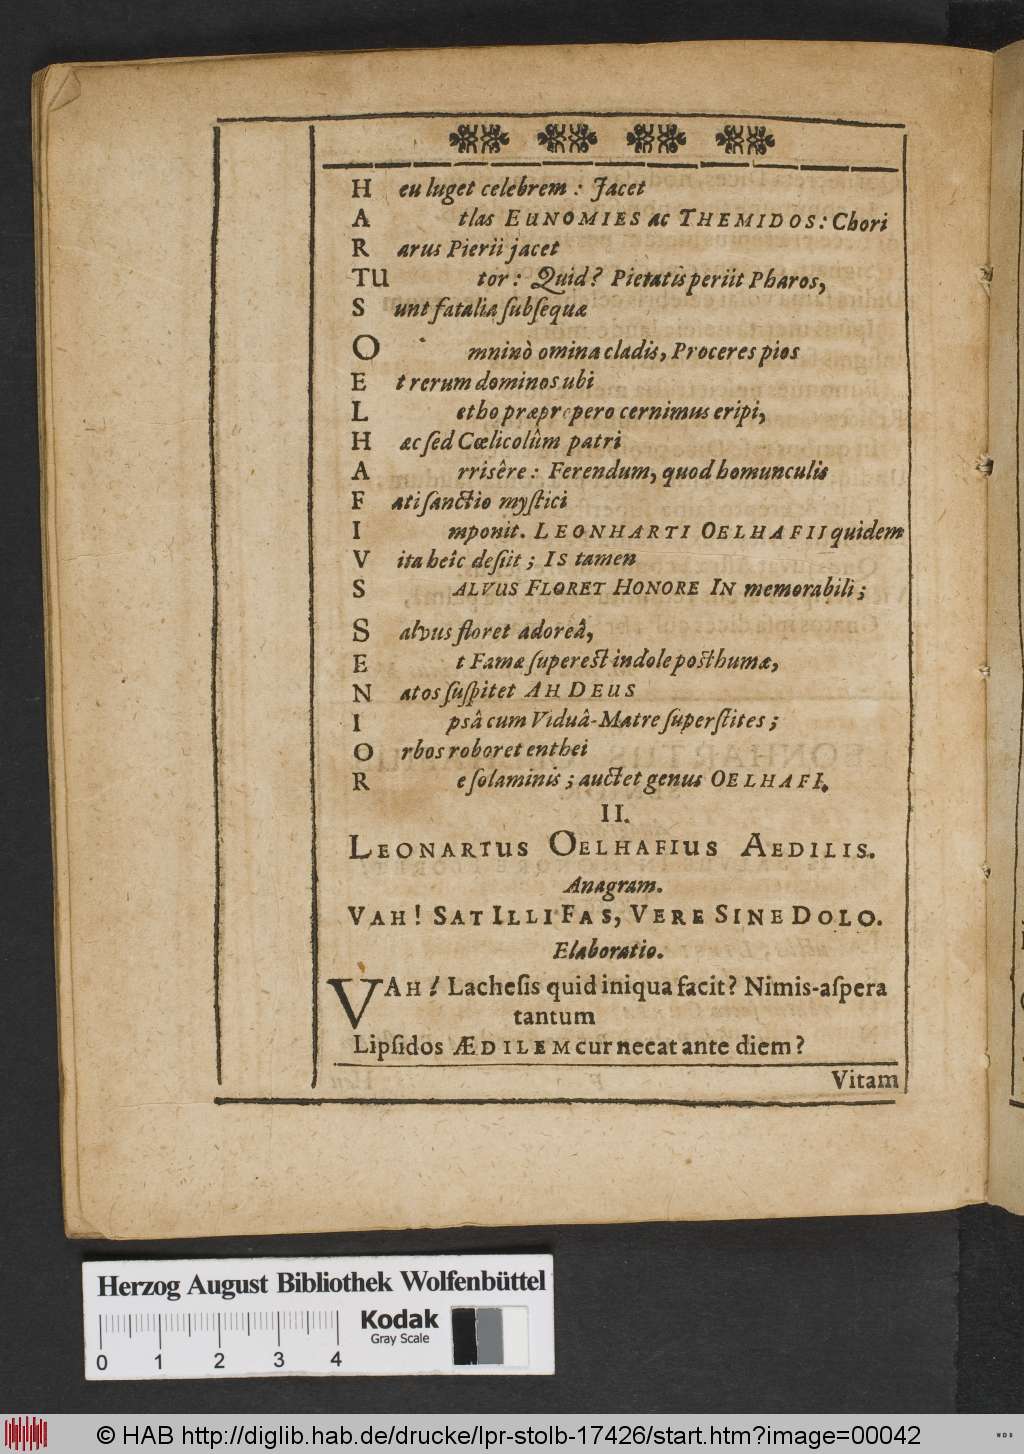 H eu luget celebrem : Jacet
A tlas EUNOMIES ac THEMIDOS : Chori
R arus Pierii jacet
TU tor : Quid? Pietatis periit Pharos,
S unt fatalia ſubſequæ
O mninò omina cladis, Proceres pios
E t rerum dominos ubi
L etho præpropero cernimus eripi,
H æc ſed Cœlicolûm patri
A rrisêre : Ferendum, quod homunculis
F ati ſanctio myſtici
I mponit. LEONHARTI OELHAFII quidem
V ita heîc deſiit ; IS tamen
S ALVUS FLORET HONORE IN memorabili ;
S alvus floret adoreâ,
E t Famæ ſupereſt indole poſthumæ,
N atos ſuſpitet AH DEUS
I psâ cum Viduâ-Matre ſuperſtites ;
O rbos roboret enthei
R e ſolaminis ; auctet genus OELHAFI.
II.
LEONARTUS OELHAFIUS AEDILIS.
Anagram.
VAH! SAT ILLI FAS, VERE SINE DOLO.
Elaboratio.
VAH! Lacheſis quid iniqua facit? Nimis-aſpera
tantum
Lipſidos ÆDILEM cur necat ante diem?
Vitam
Herzog August Bibliothek Wolfenbüttel
Kodak
Gray Scale
0 1 2 3 4
© HAB http://diglib.hab.de/drucke/lpr-stolb-17426/start.htm?image=00042